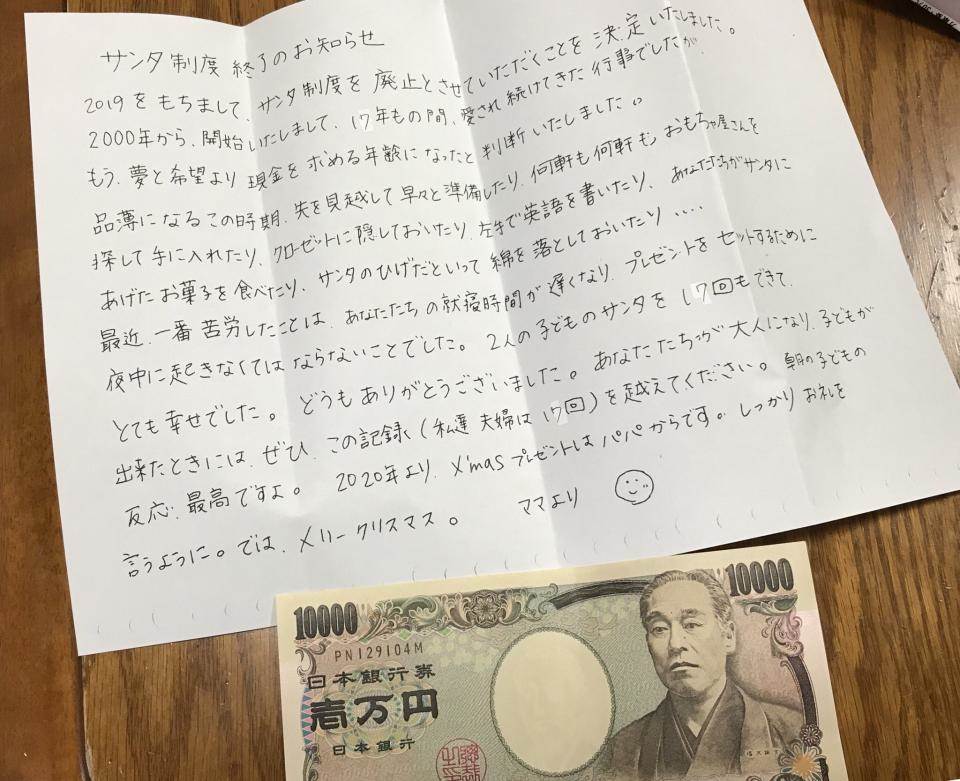 サンタ制度 終了のお知らせ
2019をもちまして、サンタ制度を廃止とさせていただくことを決定いたしました。
2000年から、開始いたしまして、17年もの間、愛され続けてきた行事でしたが、
もう、夢と希望より現金を求める年齢になったと判断いたしました。
品薄になるこの時期、先を見越して早々と準備したり、何軒も何軒もおもちゃ屋さんを
探して手に入れたり、クローゼットに隠しておいたり、左手で英語を書いたり、あなたたちがサンタに
あげたお菓子を食べたり、サンタのひげだといって綿を落としておいたり‥‥
最近、一番苦労したことは、あなたたちの就寝時間が遅くなり、プレゼントをセットするために
夜中に起きなくてはならないことでした。2人の子どものサンタを17回もできて、
とても幸せでした。どうもありがとうございました。あなたたちが大人になり、子どもが
出来たときには、ぜひ、この記録(私達夫婦は17回)を越えてください。朝の子どもの
反応、最高ですよ。2020年より、X'masプレゼントはパパからです。しっかりお礼を
言うように。では、メリークリスマス。 ママより
10000 10000
PN129104M
日本銀行券
壱万円
日本銀行